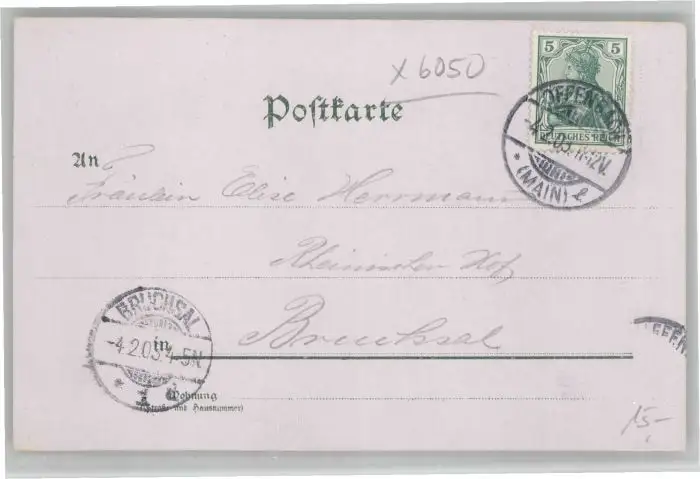 5 5
DEUTSCHES REICH
x 6050
Postkarte
OFFENBACH
-4.2.03. 11-12V.
* (MAIN) e
An
Fräulein Elise Herrmann
Rheinischer Hof
Bruchsal
BRUCHSAL
-4.2.03. 4-5N.
* 1 d
in
Wohnung
(Straße und Hausnummer)
OFFEN
15,-